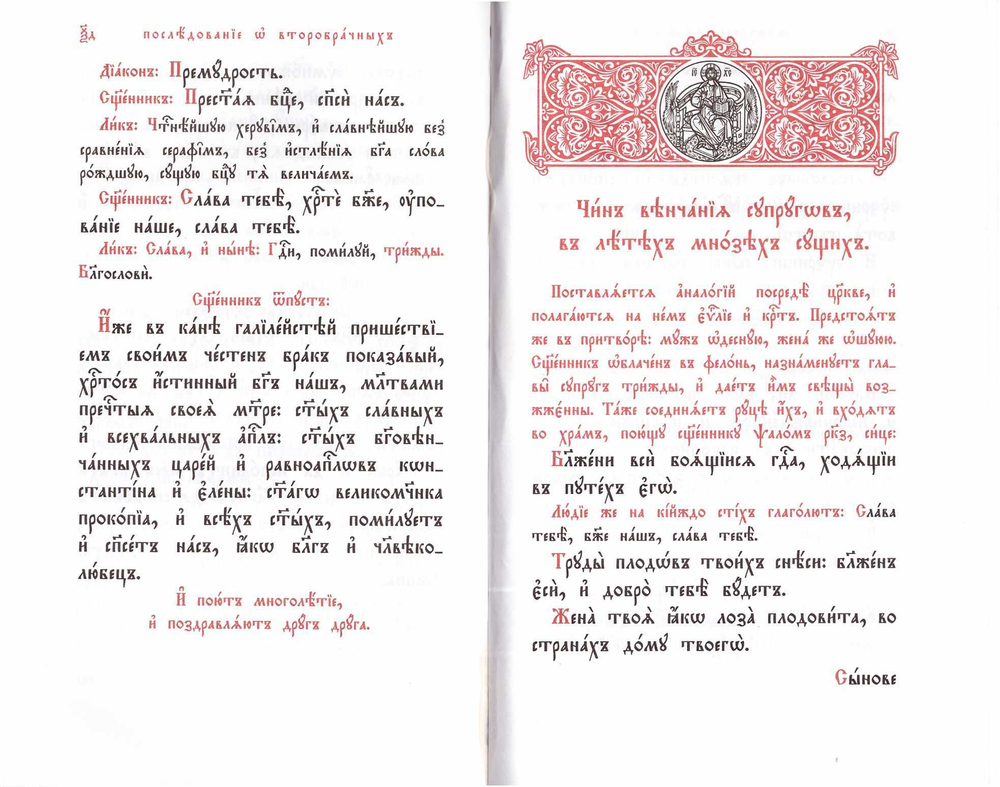 ѯ҃д послѣ́дованїе ѡ҆ второбра́чныхъ
Дїа́конъ: Премꙋ́дрость.
Сщ҃е́нникъ: Прест҃а́ѧ бц҃е, сп҃сѝ на́съ.
Ли́къ: Чт҃нѣ́йшꙋю херꙋві̑мъ, и҆ сла́внѣйшꙋю без̾
сравне́нїѧ серафі̑мъ, без̾ и҆стлѣ́нїѧ бг҃а сло́ва
ро́ждшꙋю, сꙋ́щꙋю бц҃ꙋ тѧ̀ велича́емъ.
Сщ҃е́нникъ: Сла́ва тебѣ̀, хрⷭ҇тѐ бж҃е, ᲂу҆пo-
ва́нїе на́ше, сла́ва тебѣ̀.
Ли́къ: Сла́ва, и҆ ны́нѣ: Гдⷭ҇и, поми́лꙋй, три́жды.
Бл҃гословѝ.
Сщ҃е́нникъ ѿпꙋ́стъ:
И҆́же въ ка́нѣ галїле́йстѣй прише́ствї-
емъ свои́мъ че́стенъ бра́къ показа́вый,
хрⷭ҇то́съ и҆́стинный бг҃ъ на́шъ, мл҃твами
пречⷭ҇тыѧ своеѧ̀ мт҃ре: ст҃ы́хъ сла́вныхъ
и҆ всехва́льныхъ а҆пⷭ҇лъ: ст҃ы́хъ бг҃овѣн-
ча́нныхъ царе́й и҆ равноапⷭ҇лωвъ кωн-
станті́на и҆ є҆ле́ны: ст҃а́гω великомч҃нка
проко́пїа, и҆ всѣ́хъ ст҃ы́хъ, поми́лꙋетъ
и҆ сп҃се́тъ на́съ, ꙗ҆́кω бл҃гъ и҆ чл҃вѣко-
лю́бецъ.
И҆ пою́тъ многолѣ́тїе,
и҆ поздравлѧ́ютъ дрꙋ́гъ дрꙋ́га.
Чи́нъ вѣнча́нїѧ сꙋпрꙋ́гωвъ,
въ лѣ́тѣхъ мно́зѣхъ сꙋ́щихъ.
Поставлѧ́етсѧ а҆нало́гїй посредѣ̀ цр҃кве, и҆
полага́ютсѧ на не́мъ є҆ѵⷢ҇лїе и҆ крⷭ҇тъ. Предстоѧ́тъ
же въ притво́рѣ: мꙋ́жъ ѡ҆деснꙋ́ю, жена́ же ѡ҆шꙋ́юю.
Сщ҃е́нникъ ѡ҆блаче́нъ въ фело́нь, назна́менꙋетъ гла-
вы̑ сꙋпрꙋ̑гъ три́жды, и҆ дае́тъ и҆̀мъ свѣщы̀ воз-
жже́нны. Та́же соединѧ́етъ рꙋ́цѣ и҆́хъ, и҆ вхо́дѧтъ
во хра́мъ, пою́щꙋ сщ҃е́нникꙋ ѱало́мъ рк҃з, си́це:
Бл҃же́ни всѝ боѧ́щїисѧ гдⷭ҇а, ходѧ́щїи
въ пꙋте́хъ є҆гѡ̀.
Лю́дїе же на кі́йждо сті́хъ глаго́лютъ: Сла́ва
тебѣ̀, бж҃е на́шъ, сла́ва тебѣ̀.
Трꙋды̀ плодѡ́въ твои́хъ снѣ́си: бл҃же́нъ
є҆сѝ, и҆ добро̀ тебѣ̀ бꙋ́детъ.
Жена̀ твоѧ̀ ꙗ҆́кω лоза̀ плодови́та, во
страна́хъ до́мꙋ твоегѡ̀.
Сы́нове